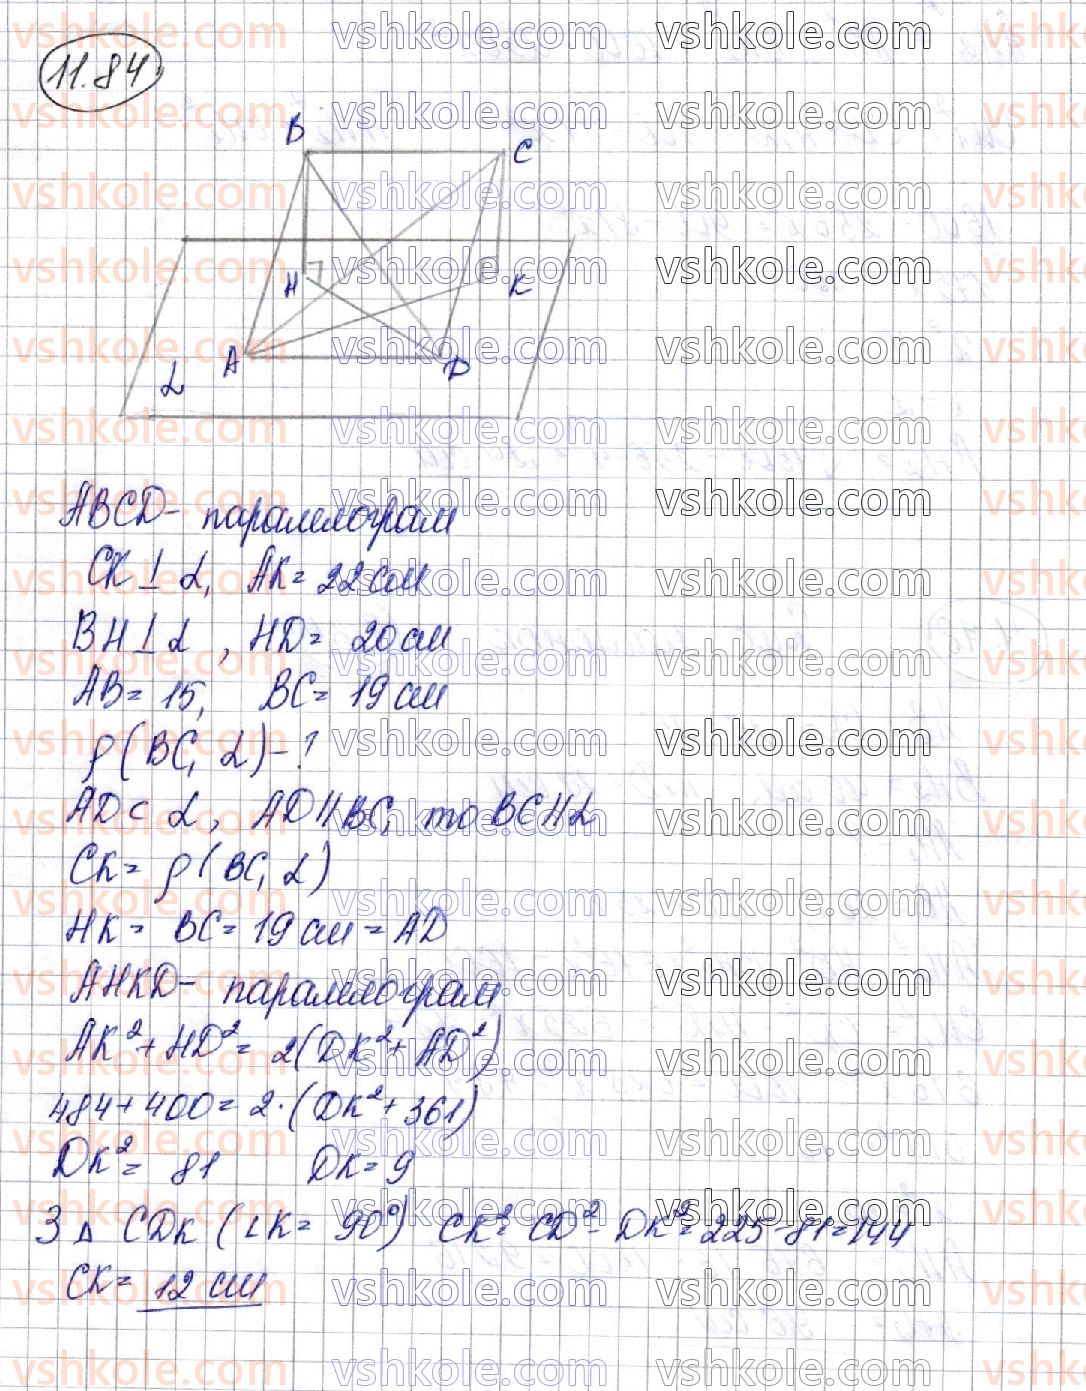 11.84
B
C
H
K
A
D
α
ABCD - паралелограм
CK ⊥ α, AK = 22 см
BH ⊥ α, HD = 20 см
AB = 15, BC = 19 см
ρ(BC, α) - ?
AD ⊂ α, AD || BC, то BC || α
CK = ρ(BC, α)
HK = BC = 19 см = AD
AHKD - паралелограм
AK² + HD² = 2(DK² + AD²)
484 + 400 = 2·(DK² + 361)
DK² = 81 DK = 9
З Δ CDK (∠K = 90°) CK² = CD² - DK² = 225 - 81 = 144
CK = 12 см
vshkole.com